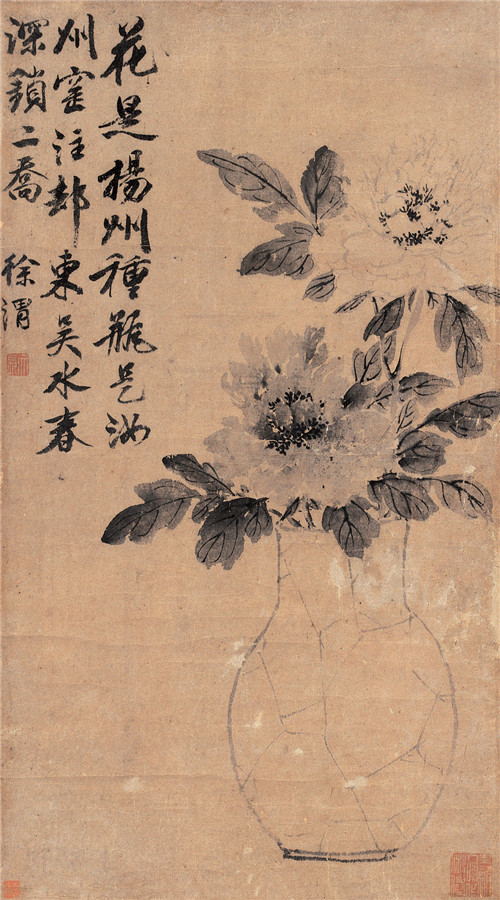 花是揚州種瓶是汝
州窰注却東吳水春
深鎖二喬 徐渭